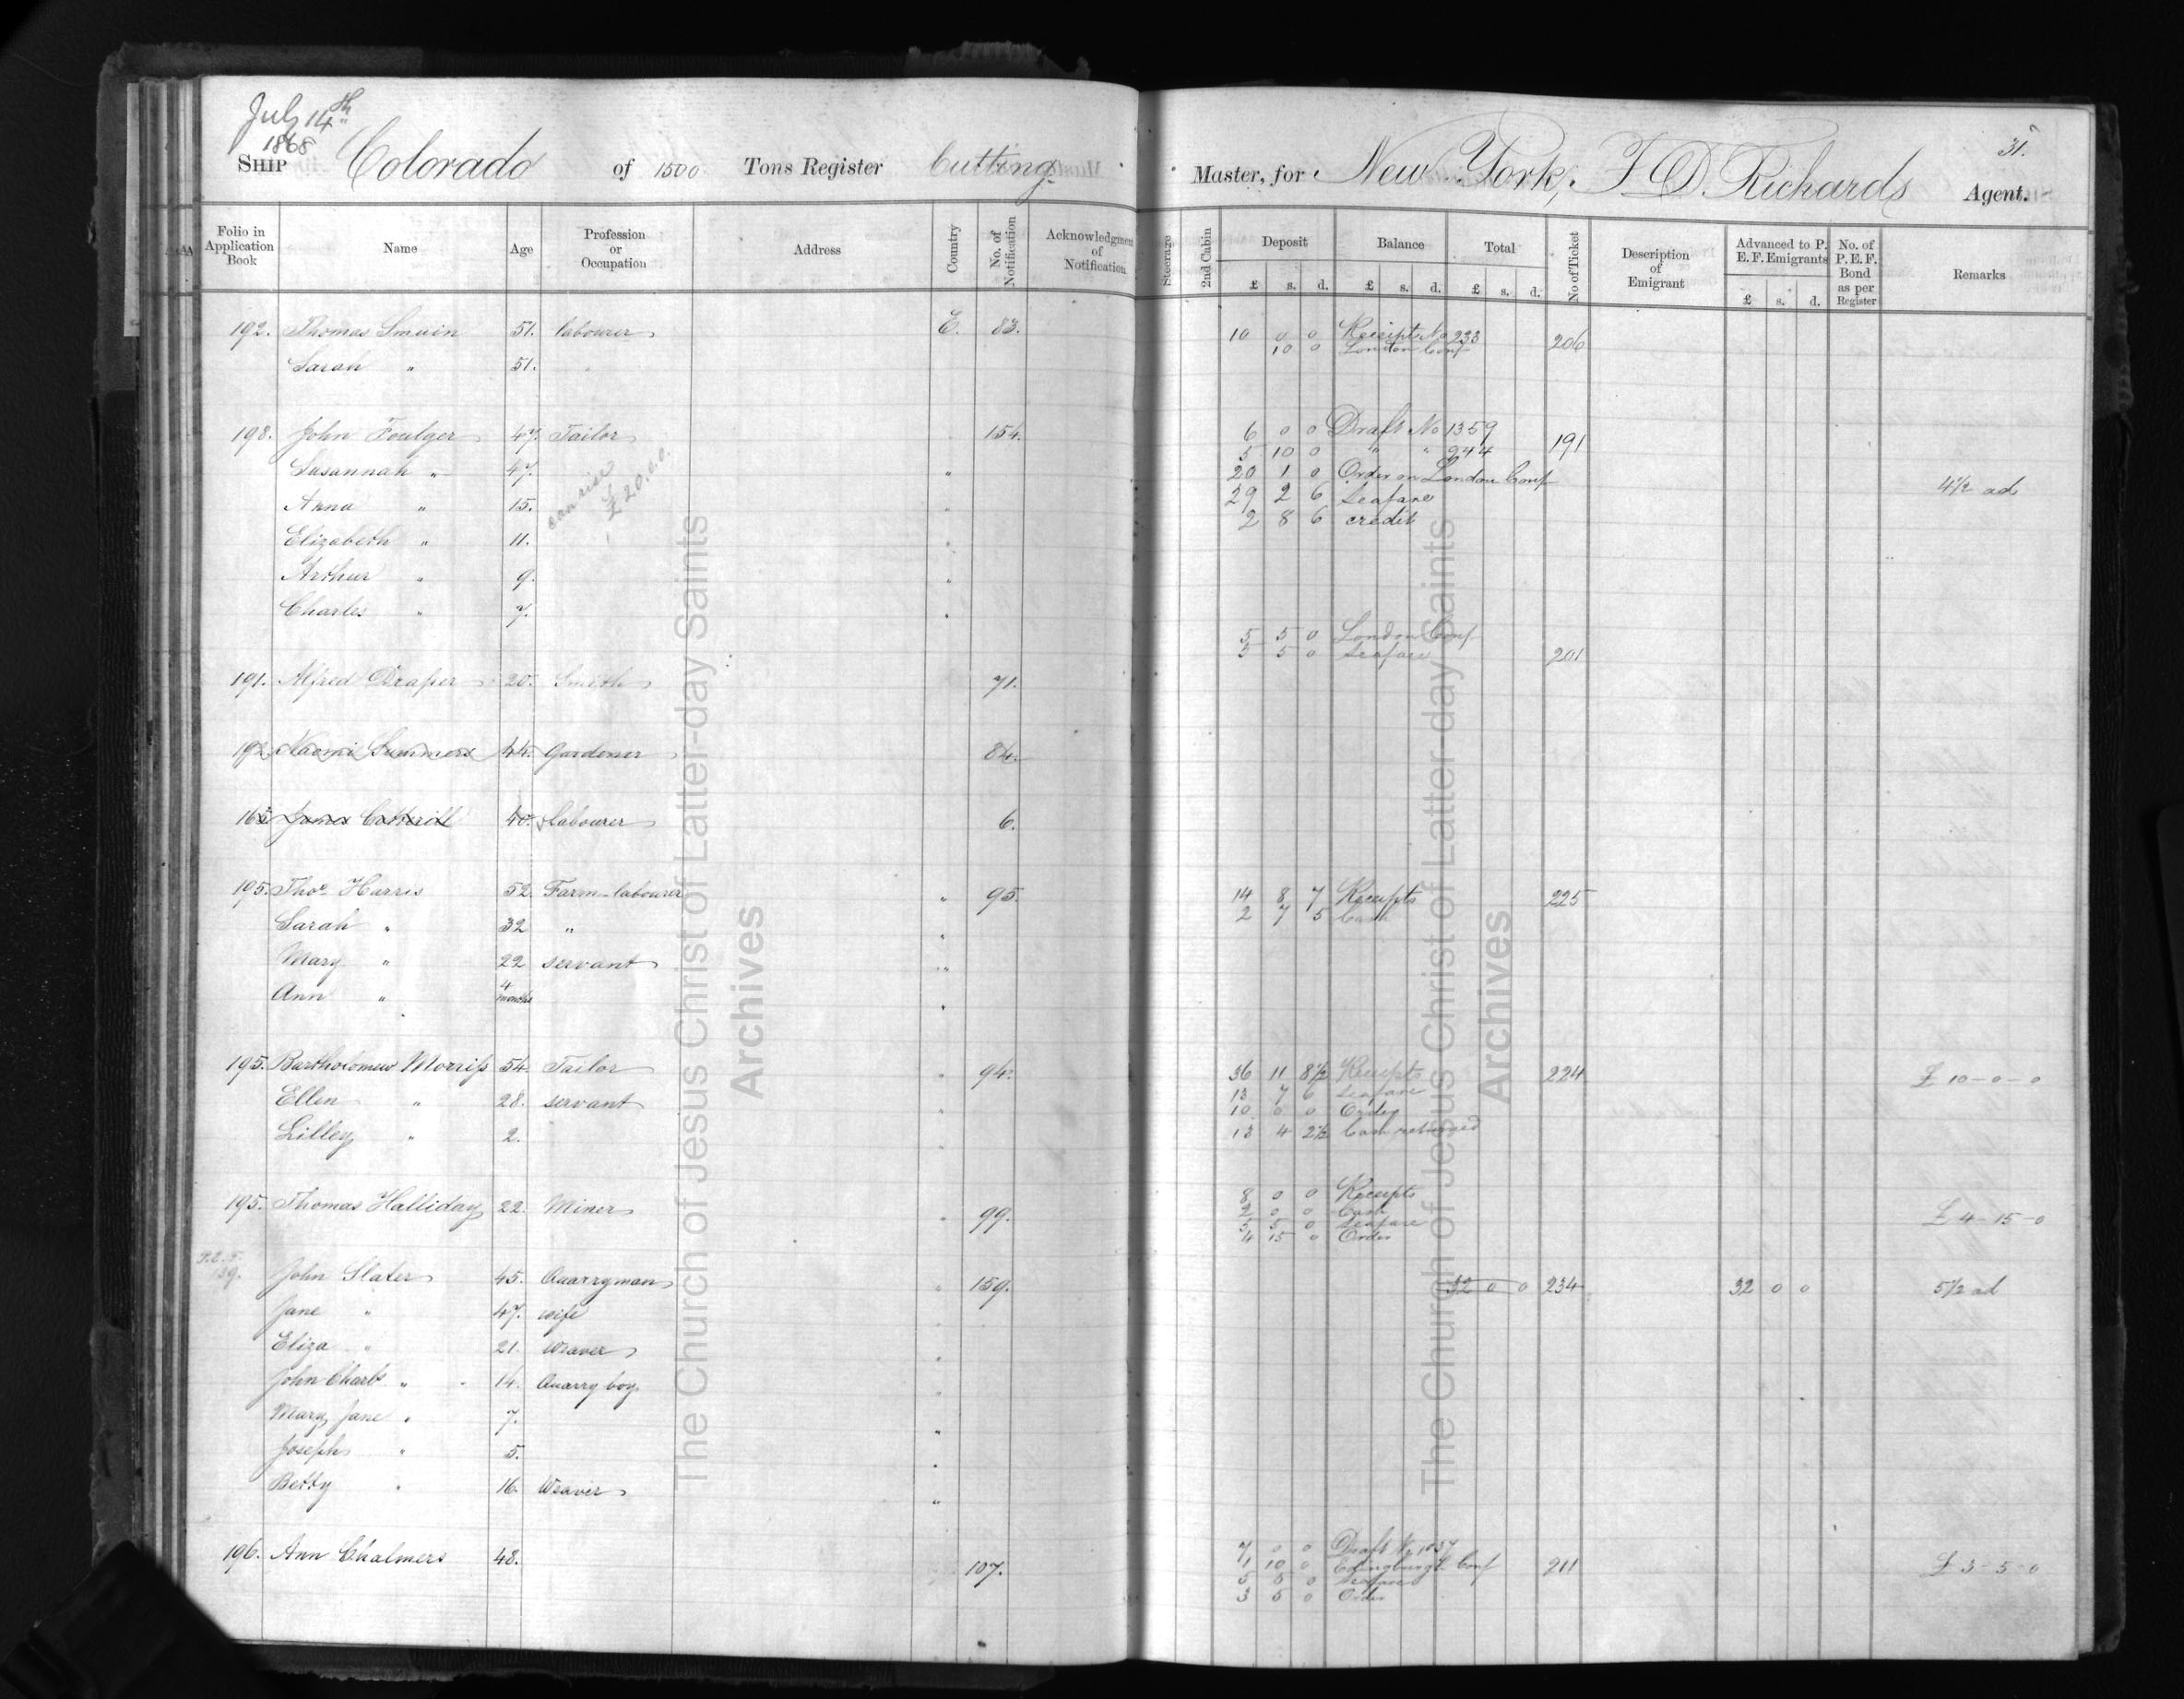 July 14th
1868
31.
SHIP Colorado of 1500 Tons Register Cutting Master, for New York, F. D. Richards Agent.
Folio in Application Book Name Age Profession or Occupation Address Country No. of Notification Acknowledgment of Notification Steerage 2nd Cabin Deposit Balance Total No of Ticket Description of Emigrant Advanced to P. E. F. Emigrants No. of P. E. F. Bond as per Register Remarks
£ s. d. £ s. d. £ s. d. £ s. d.
192. Thomas Smuin 51. labourer E. 83. 10 0 0 Receipts No 233 206
10 0 London Conf
Sarah " 51.
198. John Foulger 47. Tailor 154. 6 0 0 Draft No 1359 191
5 10 0 " " 944
Susannah " 47. " 20 1 0 Order on London Conf
can raise £20.0.0.
Anna " 15. " 29 2 6 Seafare 4½ ad
2 8 6 credit
Elizabeth " 11. "
Arthur " 9. "
Charles " 7. "
5 5 0 London Conf
5 5 0 Seafare 201
191. Alfred Draper 20. Smith 71.
192. Naomi Summers 44. Gardener 84.
James Cotterill 40. labourer 6.
195. Thos Harris 52. Farm-labourer " 95. 14 8 7 Receipts 225
2 7 5 Cash
Sarah " 32 " "
Mary " 22 servant "
Ann " 4 months "
195. Bartholomew Morriss 54. Tailor " 94. 36 11 8½ Receipts 224 £ 10-0-0
13 7 6 Seafare
Ellen " 28. servant " 10 0 0 Order
Lilley " 2. " 13 4 2½ Cash returned
195. Thomas Halliday 22. Miner " 99. 8 0 0 Receipts
2 0 0 Cash £ 4-15-0
5 5 0 Seafare
4 15 0 Order
John Slater 45. Quarryman " 159. 32 0 0 234 32 0 0 5½ ad
Jane " 47. wife "
Eliza " 21. Weaver "
John Charls " 14. Quarry boy "
Mary Jane " 7. "
Joseph " 5. "
Betty " 16. Weaver "
196. Ann Chalmers 48. 107. 7 0 0 Draft No 1037
1 10 0 Edingburgh Conf 211 £ 3-5-0
5 5 0 Seafare
3 5 0 Order
The Church of Jesus Christ of Latter-day Saints
Archives
The Church of Jesus Christ of Latter-day Saints
Archives